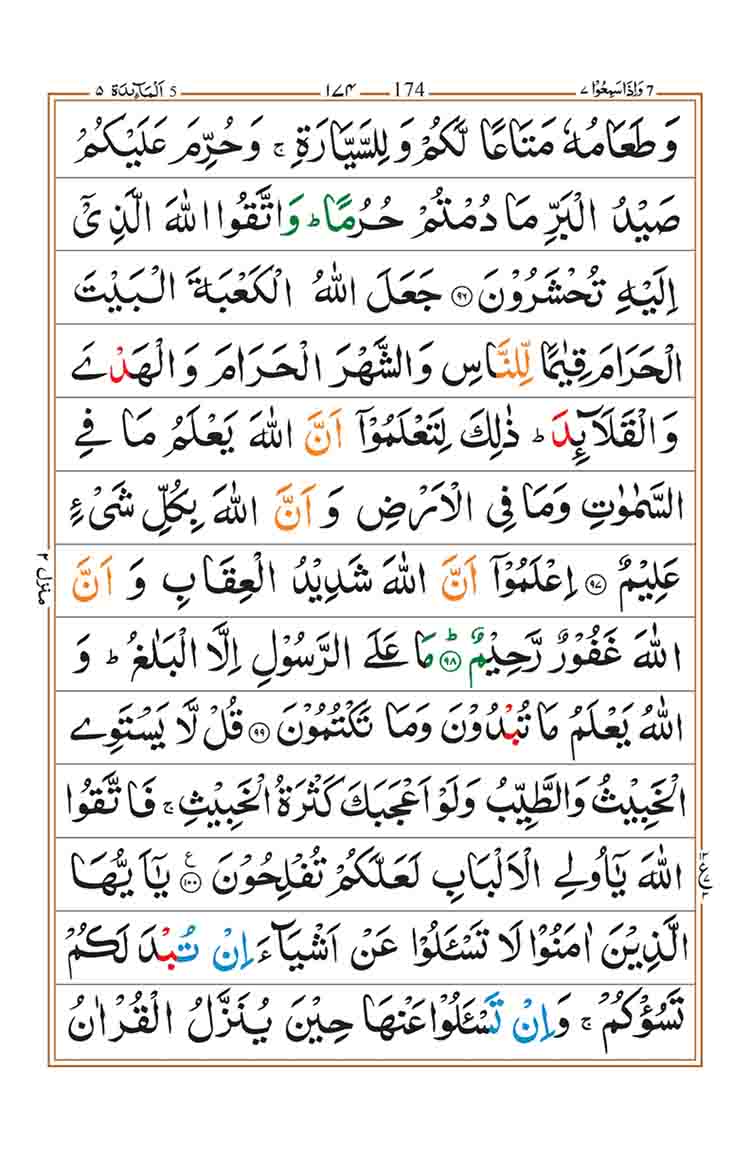 5 اَلْمَآىِٕدَة ۵ ١٧۴ 174 7 وَاِذَا سَمِعُوْا ٧
وَطَعَامُهٗ مَتَاعًا لَّكُمْ وَ لِلسَّیَّارَةِ ۚ وَحُرِّمَ عَلَیْكُمْ
صَیْدُ الْبَرِّ مَا دُمْتُمْ حُرُمًا ؕ وَاتَّقُوا اللّٰهَ الَّذِیْۤ
اِلَیْهِ تُحْشَرُوْنَ ﴿۹۶﴾ جَعَلَ اللّٰهُ الْكَعْبَةَ الْبَیْتَ
الْحَرَامَ قِیٰمًا لِّلنَّاسِ وَالشَّهْرَ الْحَرَامَ وَالْهَدْیَ
وَالْقَلَآىِٕدَ ؕ ذٰلِكَ لِتَعْلَمُوْۤا اَنَّ اللّٰهَ یَعْلَمُ مَا فِی
السَّمٰوٰتِ وَمَا فِی الْاَرْضِ وَ اَنَّ اللّٰهَ بِكُلِّ شَیْءٍ
عَلِیْمٌ ﴿۹۷﴾ اِعْلَمُوْۤا اَنَّ اللّٰهَ شَدِیْدُ الْعِقَابِ وَ اَنَّ
اللّٰهَ غَفُوْرٌ رَّحِیْمٌ ؕ﴿۹۸﴾ مَا عَلَی الرَّسُوْلِ اِلَّا الْبَلٰغُ ؕ وَ
اللّٰهُ یَعْلَمُ مَا تُبْدُوْنَ وَمَا تَكْتُمُوْنَ ﴿۹۹﴾ قُلْ لَّا یَسْتَوِی
الْخَبِیْثُ وَالطَّیِّبُ وَلَوْ اَعْجَبَكَ كَثْرَةُ الْخَبِیْثِ ۚ فَاتَّقُوا
اللّٰهَ یٰۤاُولِی الْاَلْبَابِ لَعَلَّكُمْ تُفْلِحُوْنَ ﴿۱۰۰﴾ ع یٰۤاَیُّهَا
الَّذِیْنَ اٰمَنُوْا لَا تَسْـَٔلُوْا عَنْ اَشْیَآءَ اِنْ تُبْدَ لَكُمْ
تَسُؤْكُمْ ۚ وَاِنْ تَسْـَٔلُوْا عَنْهَا حِیْنَ یُنَزَّلُ الْقُرْاٰنُ
منزل ۲